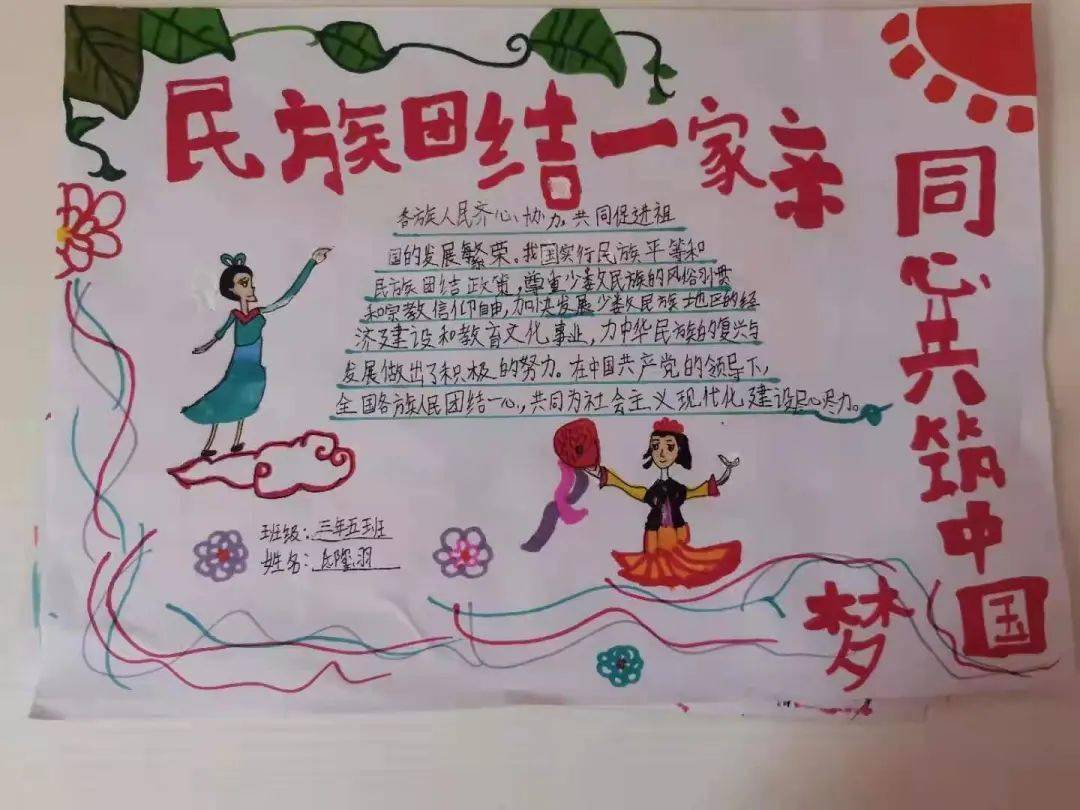 民族团结一家亲
同心共筑中国
梦
各族人民齐心协力,共同促进祖
国的发展繁荣。我国实行民族平等和
民族团结政策,尊重少数民族的风俗习惯
和宗教信仰自由,加快发展少数民族地区的经
济建设和教育文化事业,力中华民族的复兴与
发展做出了积极的努力。在中国共产党的领导下,
全国各族人民团结一心,共同为社会主义现代化建设尽心尽力。
班级:三年五班
姓名: